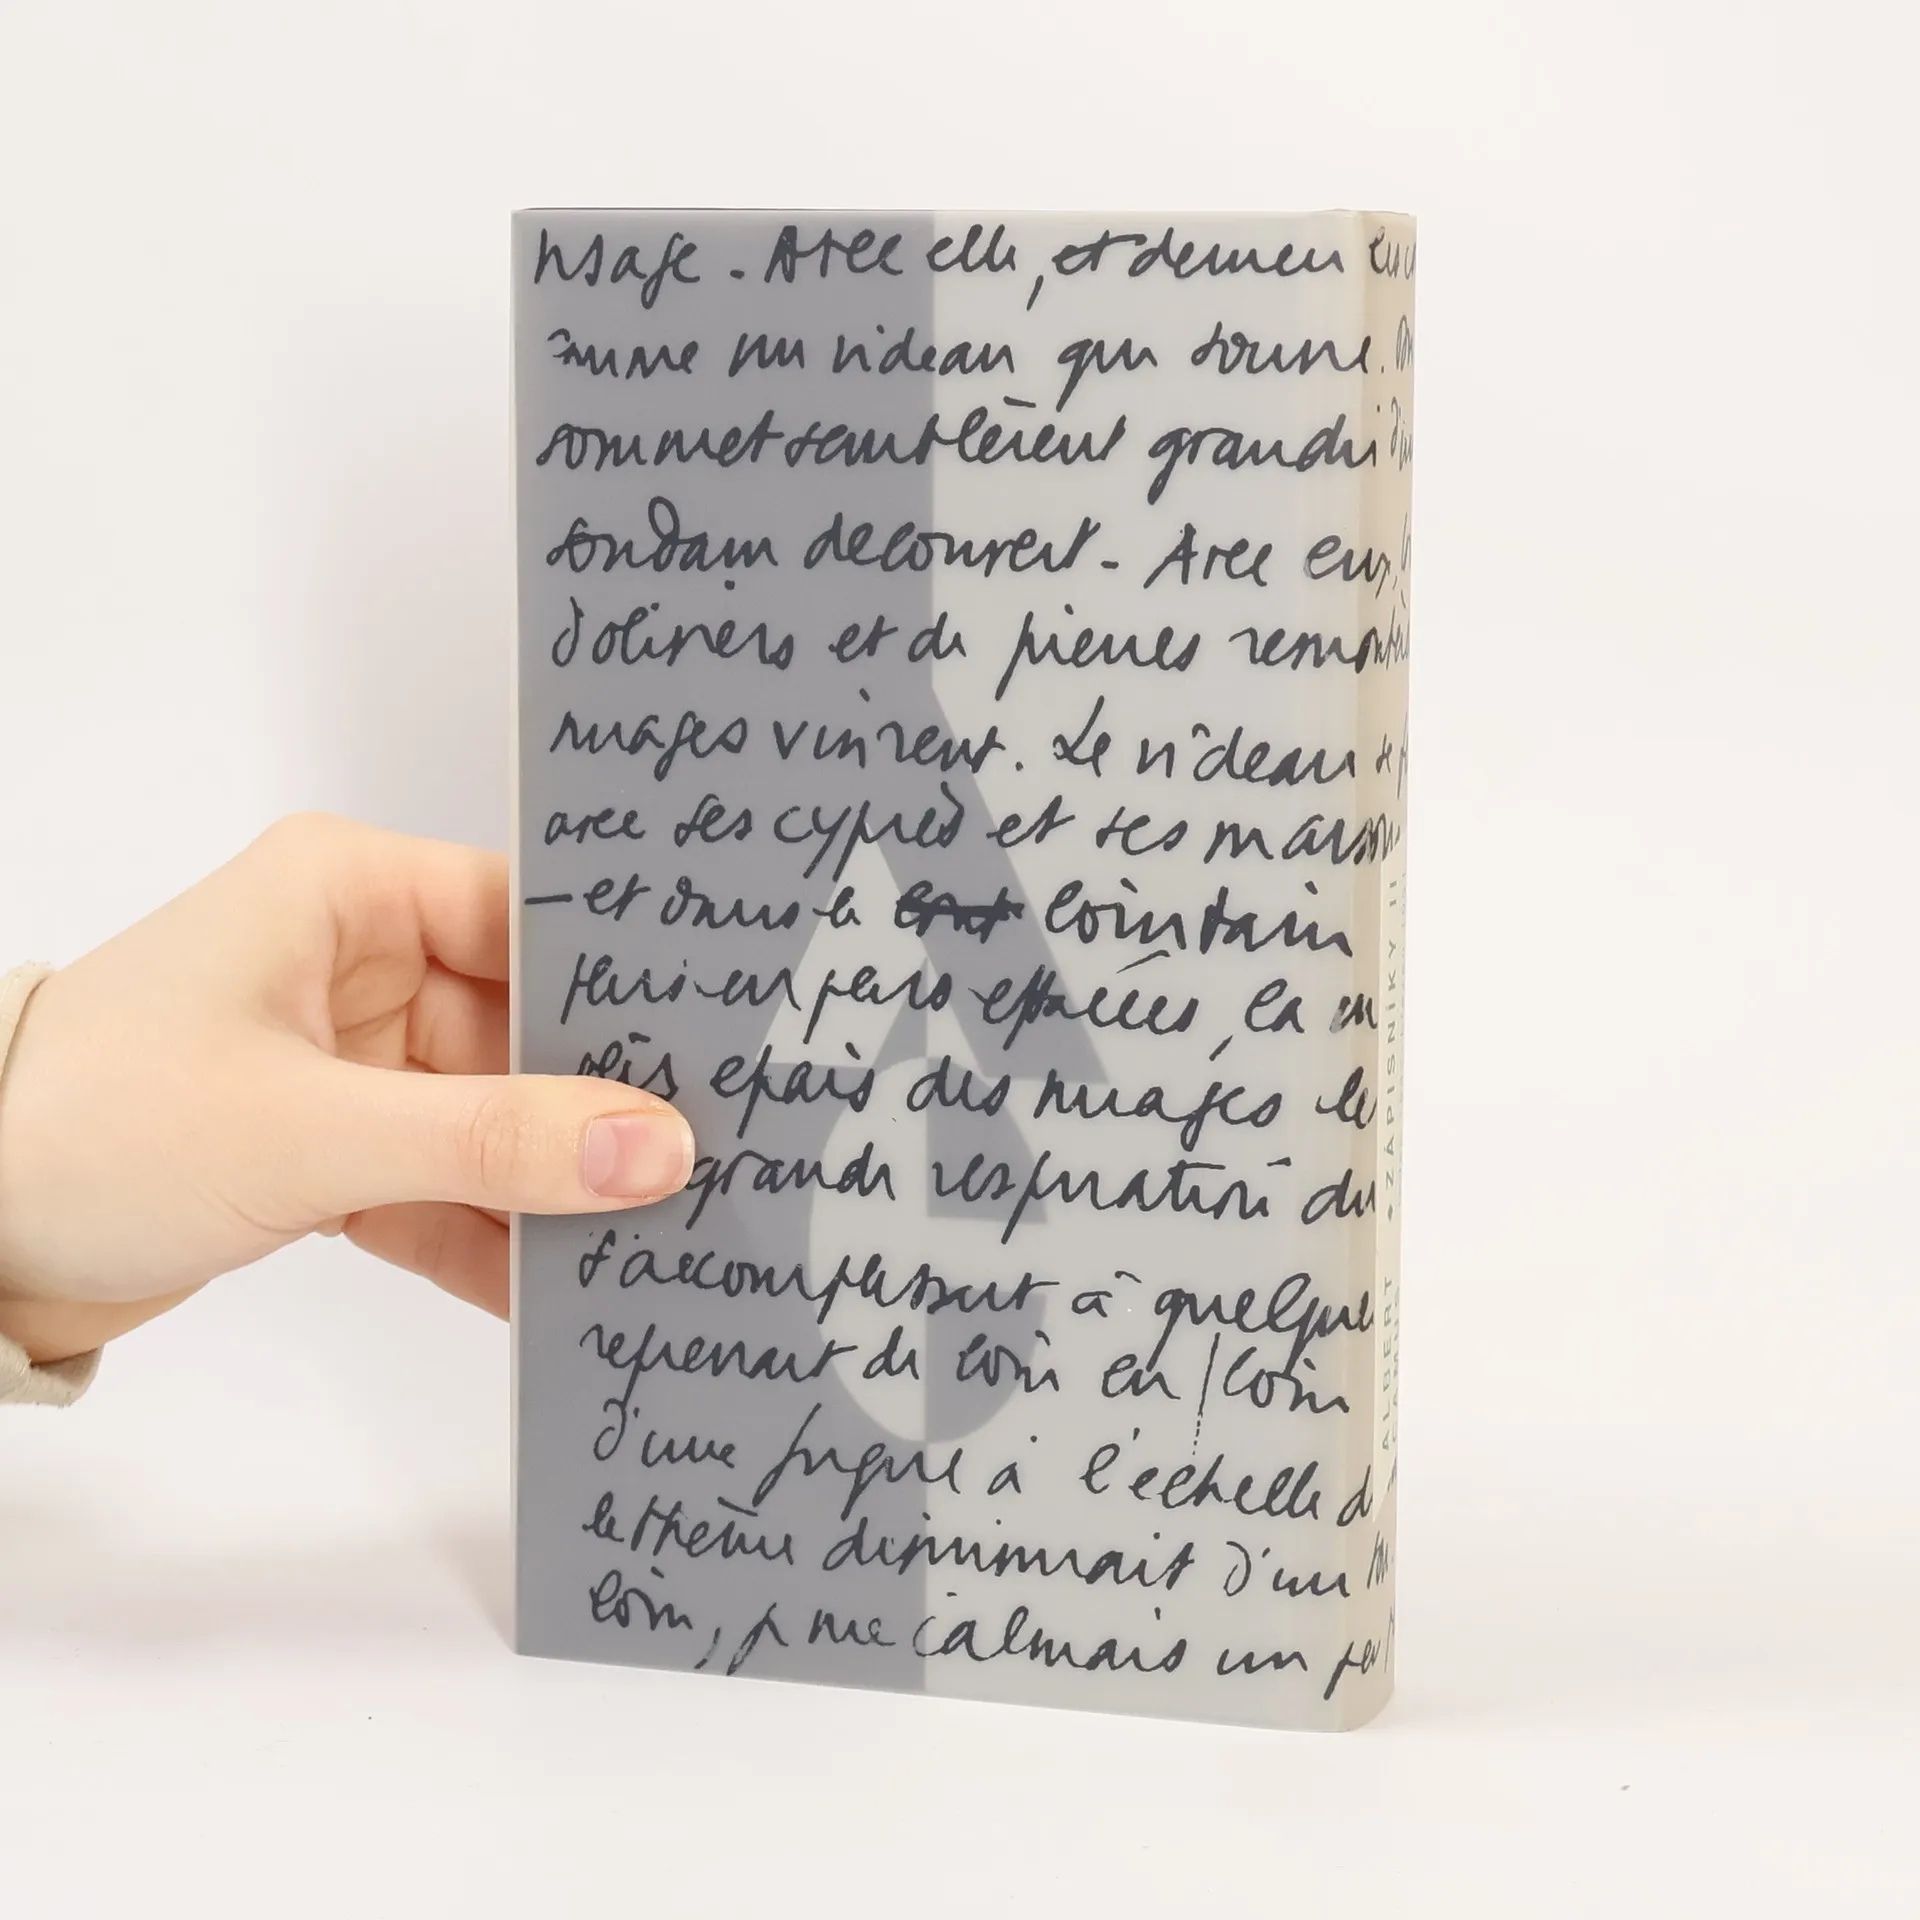 visage. Avec elle, et derrière les c
comme un rideau qui s'ouvre.
sommet semblèrent grandir d'un
soudain découvert. Avec eux,
d'oliviers et de pierres remontés
nuages vinrent. Le rideau se
avec ses cyprès et ses maisons
— et dans le lointain
plus en plus effacées, la
plis épais des nuages
grande respiration du
s'accomplissait à quelques
reprenait de loin en loin
d'une fugue à l'échelle d
le thème diminuait d'un ton.
loin, je me calmais un peu
ALBERT CAMUS • ZÁPISNÍKY II